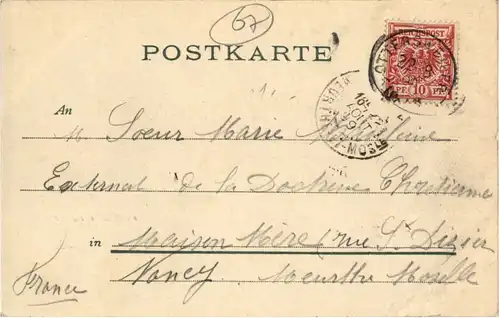 67
POSTKARTE
REICHSPOST
PF. 10 PF.
16E
AOUT
99
MEURTHE-ET-MOSELLE
An
M Soeur Marie
Externat de la Doctrine Chrétienne
in Maison Mère (rue St Dizier
Nancy Meurthe Moselle
France